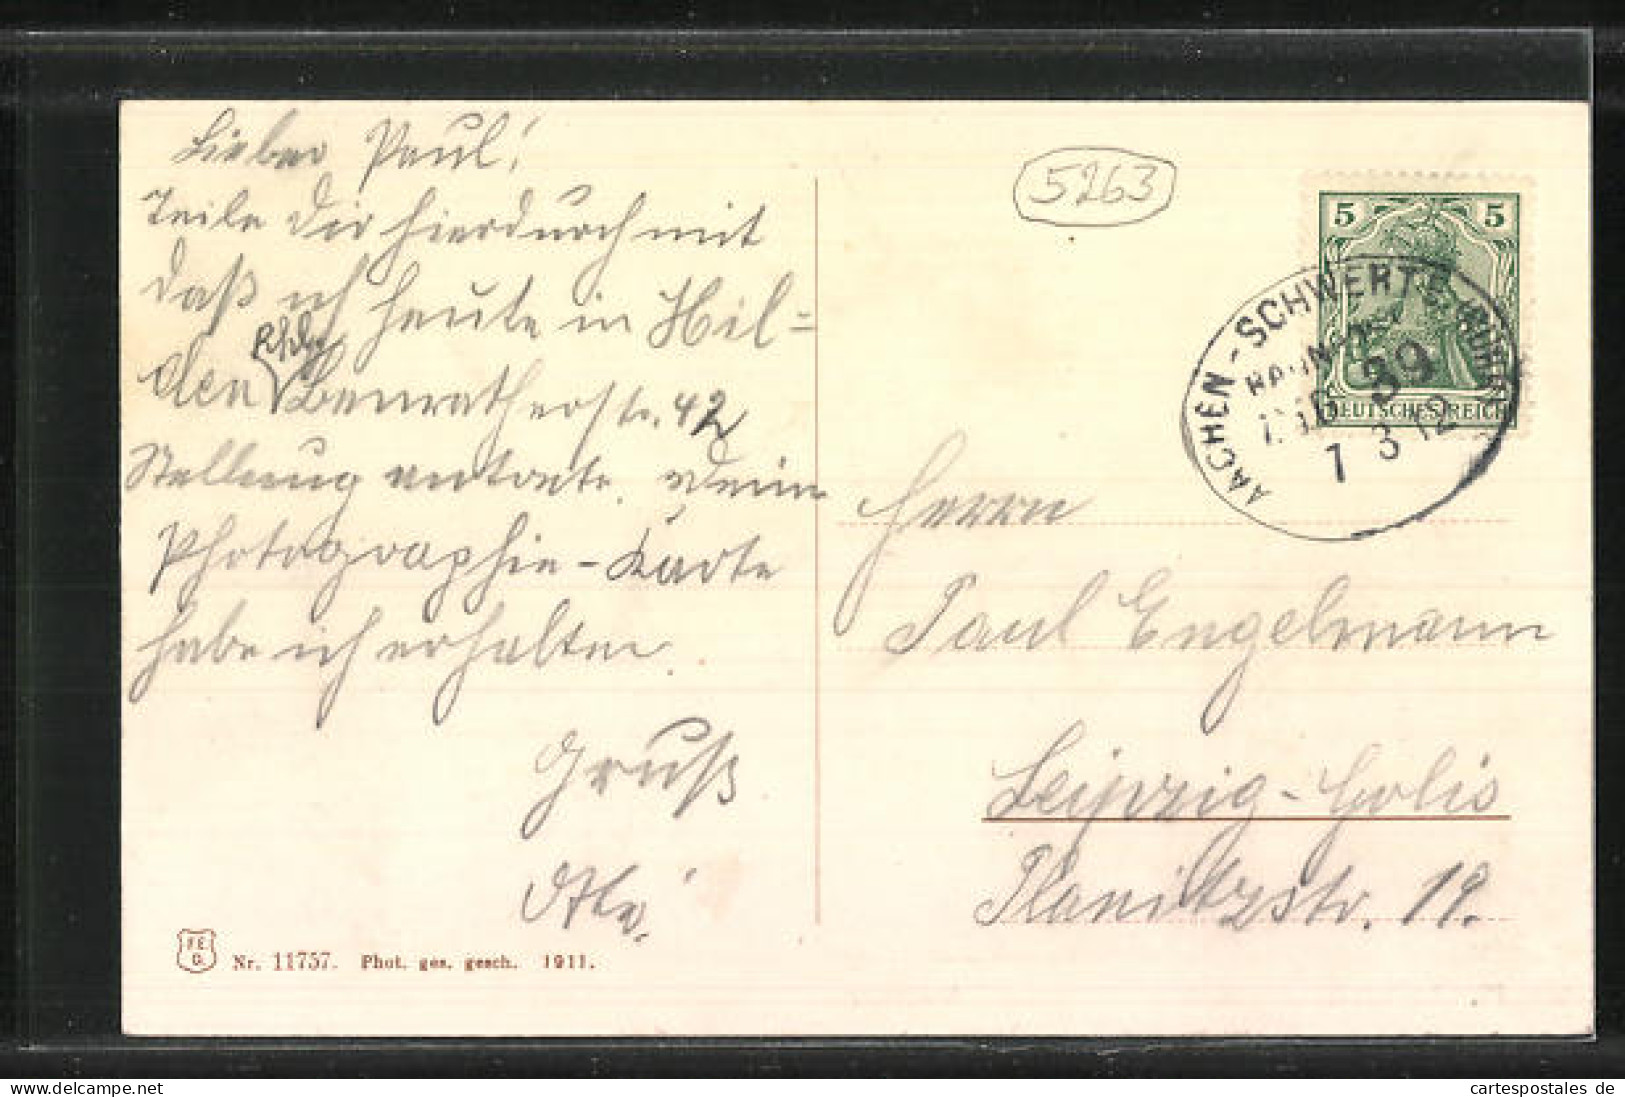 Lieber Paul!
Teile Dir hierdurch mit
daß ich heute in Hil=
den Benratherstr. 42
Stellung antrete. Deine
Photographie-Karte
habe ich erhalten.
Gruß
Otto.
5263
5 5
DEUTSCHES REICH
AACHEN-SCHWERTE (RUHR)
BAHNPOST
ZUG 39
1 3 12
Herrn
Paul Engelmann
Leipzig-Gohlis
Planitzstr. 19.
FEG
Nr. 11757. Phot. ges. gesch. 1911.
cartespostales.de
cartespostales de